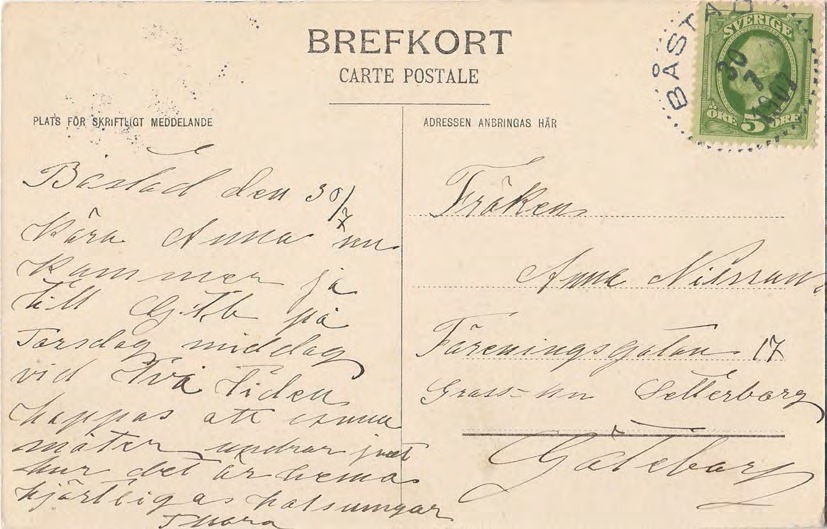 BREFKORT
CARTE POSTALE
PLATS FÖR SKRIFTLIGT MEDDELANDE
Båstad den 30/7
Kära Anna nu
kommer ja
till Gtb på
Torsdag middag
vid två tiden
hoppas att
möter undrar just
hur det är hema
hjärtligas halsningar
ADRESSEN ANBRINGAS HÄR
Fröken
Anna Nilsson
Föreningsgatan 17
Göteborg
BÅSTAD
30
7
SVERIGE
5
ÖRE ÖRE